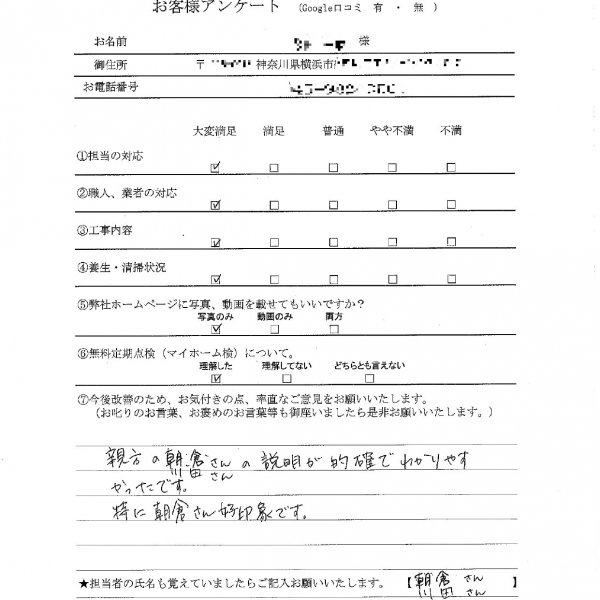 お客様アンケート （Google口コミ 有 ・ 無 ）
お名前 様
御住所 〒 神奈川県横浜市
お電話番号
大変満足 満足 普通 やや不満 不満
①担当の対応 ☑ □ □ □ □
②職人、業者の対応 ☑ □ □ □ □
③工事内容 ☑ □ □ □ □
④養生・清掃状況 ☑ □ □ □ □
⑤弊社ホームページに写真、動画を載せてもいいですか？
写真のみ 動画のみ 両方
☑ □ □
⑥無料定期点検（マイホーム検）について。
理解した 理解してない どちらとも言えない
☑ □ □
⑦今後改善のため、お気付きの点、率直なご意見をお願いいたします。
（お叱りのお言葉、お褒めのお言葉等も御座いましたら是非お願いいたします。）
親方の朝倉さんの説明が的確でわかりやす
川田さん
かったです。
特に朝倉さん好印象です。
★担当者の氏名も覚えていましたらご記入お願いいたします。 【朝倉さん
川田さん】